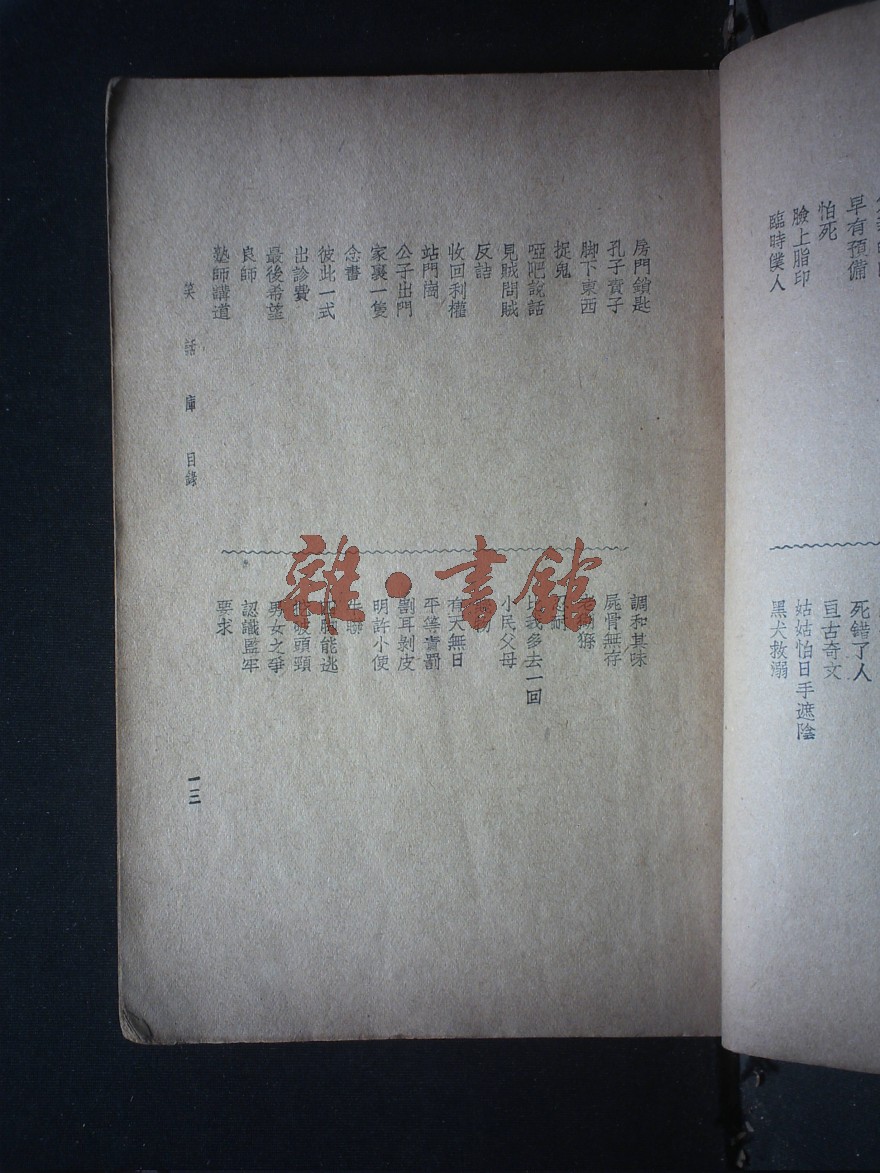 早有預備
怕死
臉上脂印
臨時僕人
死錯了人
亘古奇文
姑姑怕日手遮陰
黑犬救溺
房門鎖匙
孔子賣子
脚下東西
捉鬼
啞吧說話
見賊問賊
反詰
收回利權
站門崗
公子出門
家裏一隻
念書
彼此一式
出診費
最後希望
良師
塾師講道
調和其味
屍骨無存
比我多去一回
小民父母
有天無日
平等責罰
劉耳剝皮
明許小便
能逃
破頭頸
男女之爭
認識監牢
要求
笑話庫目錄
一三
雜·書館